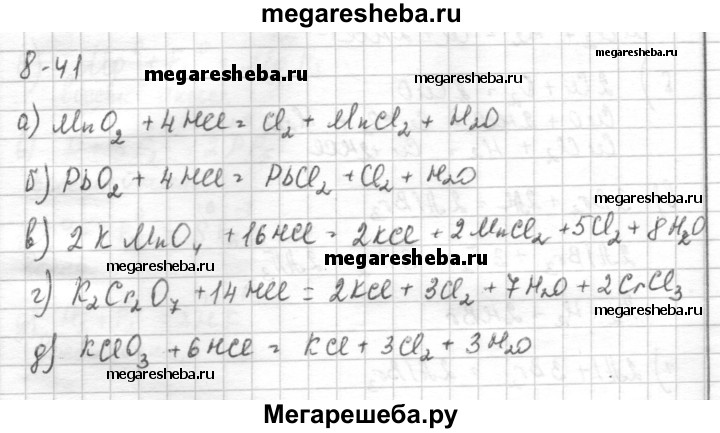 megaresheba.ru
8-41
megaresheba.ru
megaresheba.ru
megaresheba.ru
а) MnO₂ + 4HCl = Cl₂ + MnCl₂ + H₂O
б) PbO₂ + 4HCl = PbCl₂ + Cl₂ + H₂O
megaresheba.ru
в) 2KMnO₄ + 16HCl = 2KCl + 2MnCl₂ + 5Cl₂ + 8H₂O
megaresheba.ru
г) K₂Cr₂O₇ + 14HCl = 2KCl + 3Cl₂ + 7H₂O + 2CrCl₃
megaresheba.ru
д) KClO₃ + 6HCl = KCl + 3Cl₂ + 3H₂O
megaresheba.ru
Мегарешеба.ру